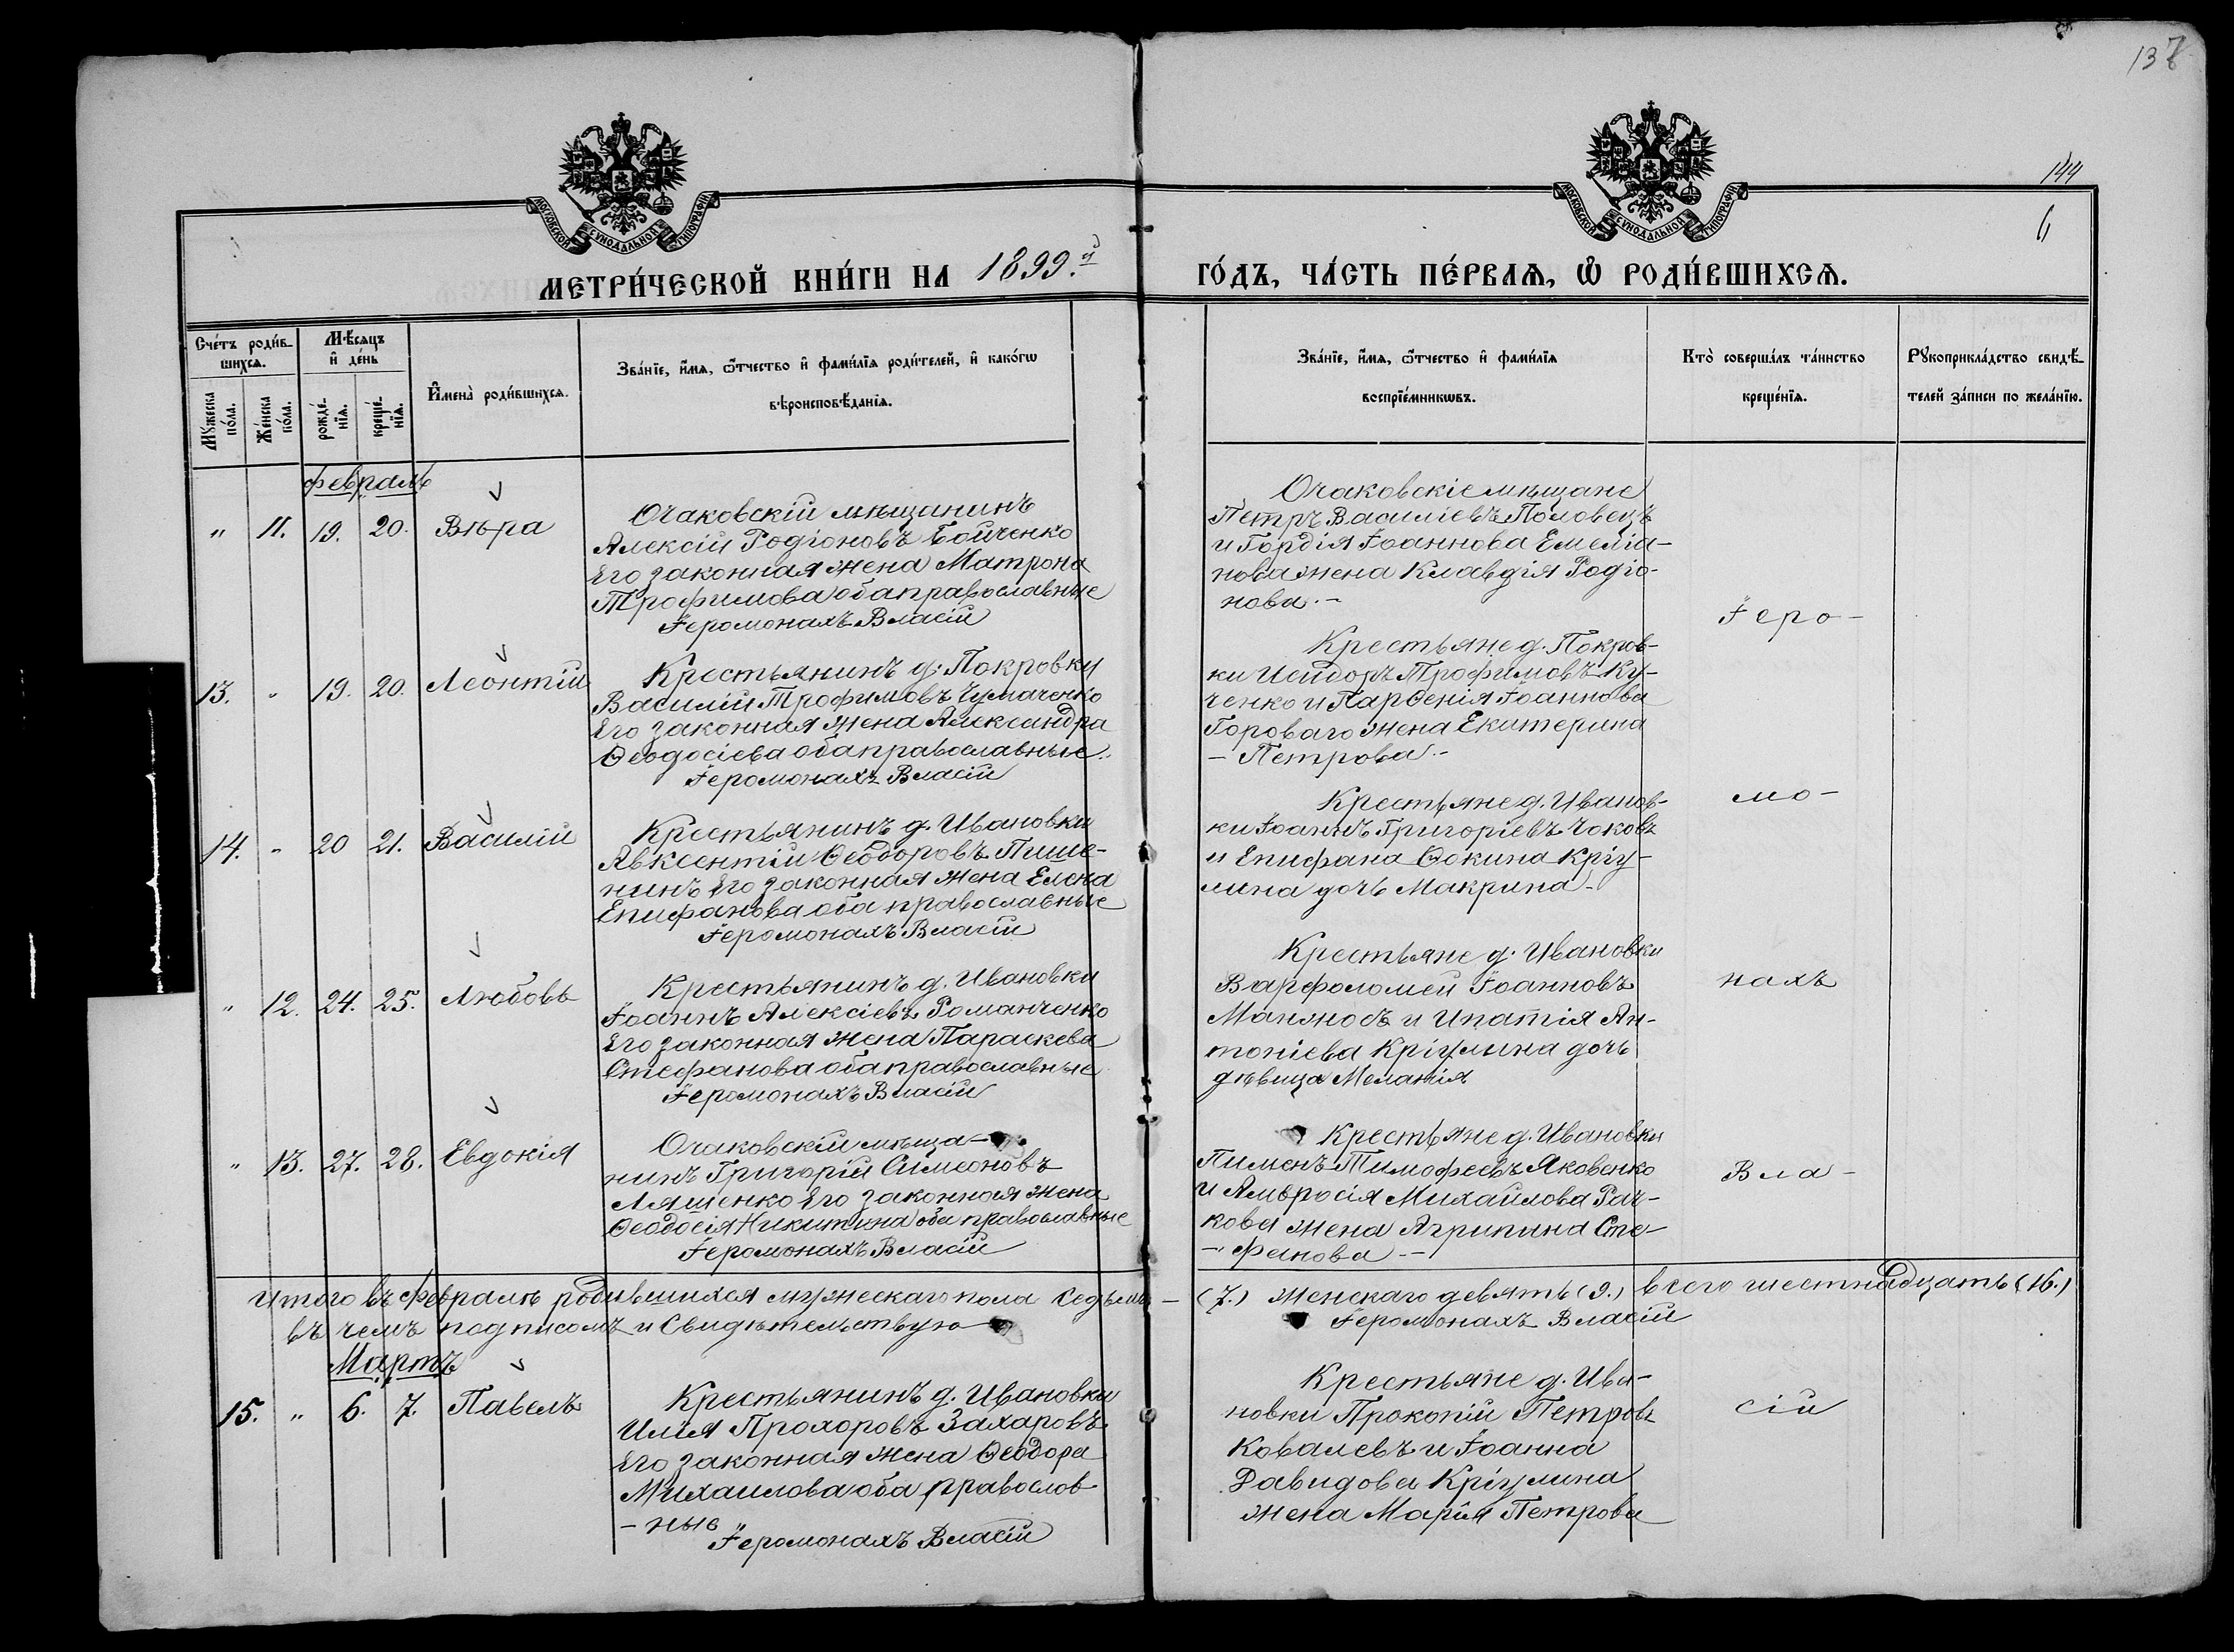 137
144
6
МОСКОВСКОЙ СѴНОДАЛЬНОЙ ТИПОГРАФІИ
МОСКОВСКОЙ СѴНОДАЛЬНОЙ ТИПОГРАФІИ
МЕТРИ́ЧЕСКОЙ КНИ́ГИ НА 1899.й
ГО́ДЪ, ЧА́СТЬ ПЕ́РВАѦ, Ѡ҆ РОДИ́ВШИХСѦ.
Сче́тъ роди́в-
шихсѧ.
Мѣ́сѧцъ
и҆ де́нь
Мꙋ́жеска
по́ла.
Же́нска
по́ла.
рожде́-
нїѧ.
креще́-
нїѧ.
И҆мена̀ роди́вшихсѧ.
Зва́нїе, и҆́мѧ, ѻ҆́тчество и҆ фами́лїѧ роди́телей, и҆ како́гѡ
вѣроисповѣ́данїѧ.
Зва́нїе, и҆́мѧ, ѻ҆́тчество и҆ фами́лїѧ
воспрїе́мникѡвъ.
Кто̀ соверша́лъ та́инство
креще́нїѧ.
Рꙋкоприкла́дство свидѣ́-
телей за́писи по жела́нїю.
Февраль
" 11. 19. 20. Вѣра
Очаковскій мѣщанинъ
Алексій Родіоновъ Бойченко
Его законная жена Матрона
Трофимова оба православные
Іеромонахъ Власій
Очаковскіе мѣщане
Петръ Василіевъ Половецъ
и Гордія Іоаннова Емеліа-
нова жена Клавдія Родіо-
нова.-
13. " 19. 20. Леонтій
Крестьянинъ д. Покровки
Василій Трофимовъ Чумаченко
Его законная жена Александра
Ѳеодосіева оба православные.
Іеромонахъ Власій
Крестьяне д. Покров-
ки Исидоръ Трофимовъ Ку-
ченко и Парѳенія Іоаннова
Горового жена Екатерина
- Петрова.-
14. " 20 21. Василій
Крестьянинъ д. Ивановки
Авксентій Ѳеодоровъ Пише-
нинъ Его законная жена Елена
Епифанова оба православные
Іеромонахъ Власій
Крестьяне д. Иванов-
ки Іоаннъ Григоріевъ Чоковъ
и Епифана Ѳокина Кріу-
лина дочь Макрина-
" 12. 24. 25. Любовь
Крестьянинъ д. Ивановки
Іоаннъ Алексіевъ Романченко
Его законная жена Параскева
Стефанова оба православные
Іеромонахъ Власій
Крестьяне д. Ивановки
Варфоломей Іоанновъ
Манжосъ и Ипатія Ан-
тоніева Кріулина дочь
дѣвица Меланія
" 13. 27. 28. Евдокія
Очаковскій мѣща-
нинъ Григорій Симеоновъ
Ляшенко Его законная жена
Ѳеодосія Никитина оба православные
Іеромонахъ Власій
Крестьяне д. Ивановки
Пименъ Тимофеевъ Яковенко
и Амвросія Михаилова Рач-
кова жена Агрипина Сте-
- фанова -
Іеро-
мо-
нахъ
Вла-
сій
Итого въ Февралѣ родившихся мужескаго пола седьмъ - (7.) Женскаго девять (9.) всего шестнадцать (16.)
въ чемъ подписомъ и Свидѣтельствую Іеромонахъ Власій
Мартъ
15. " 6. 7. Павелъ
Крестьянинъ д. Ивановки
Илія Прохоровъ Захаровъ
Его законная жена Ѳеодора
Михаилова оба православ-
- ные
Іеромонахъ Власій
Крестьяне д. Ива-
новки Прокопій Петровъ
Ковалевъ и Іоанна
Давидова Кріулина
жена Марія Петрова